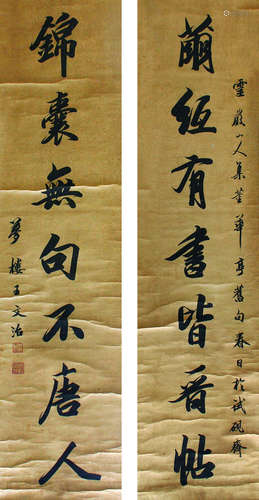 靈巖山人集董華亭舊句春日於試硯齋
繭紙有書皆晋帖
錦囊無句不唐人
夢樓王文治